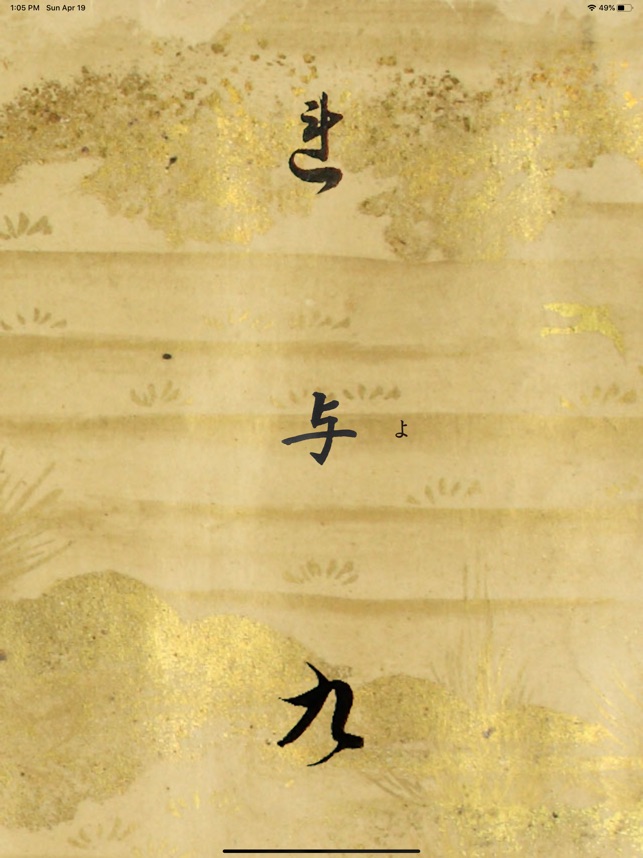 1:05 PM Sun Apr 19 49%
与 よ
九